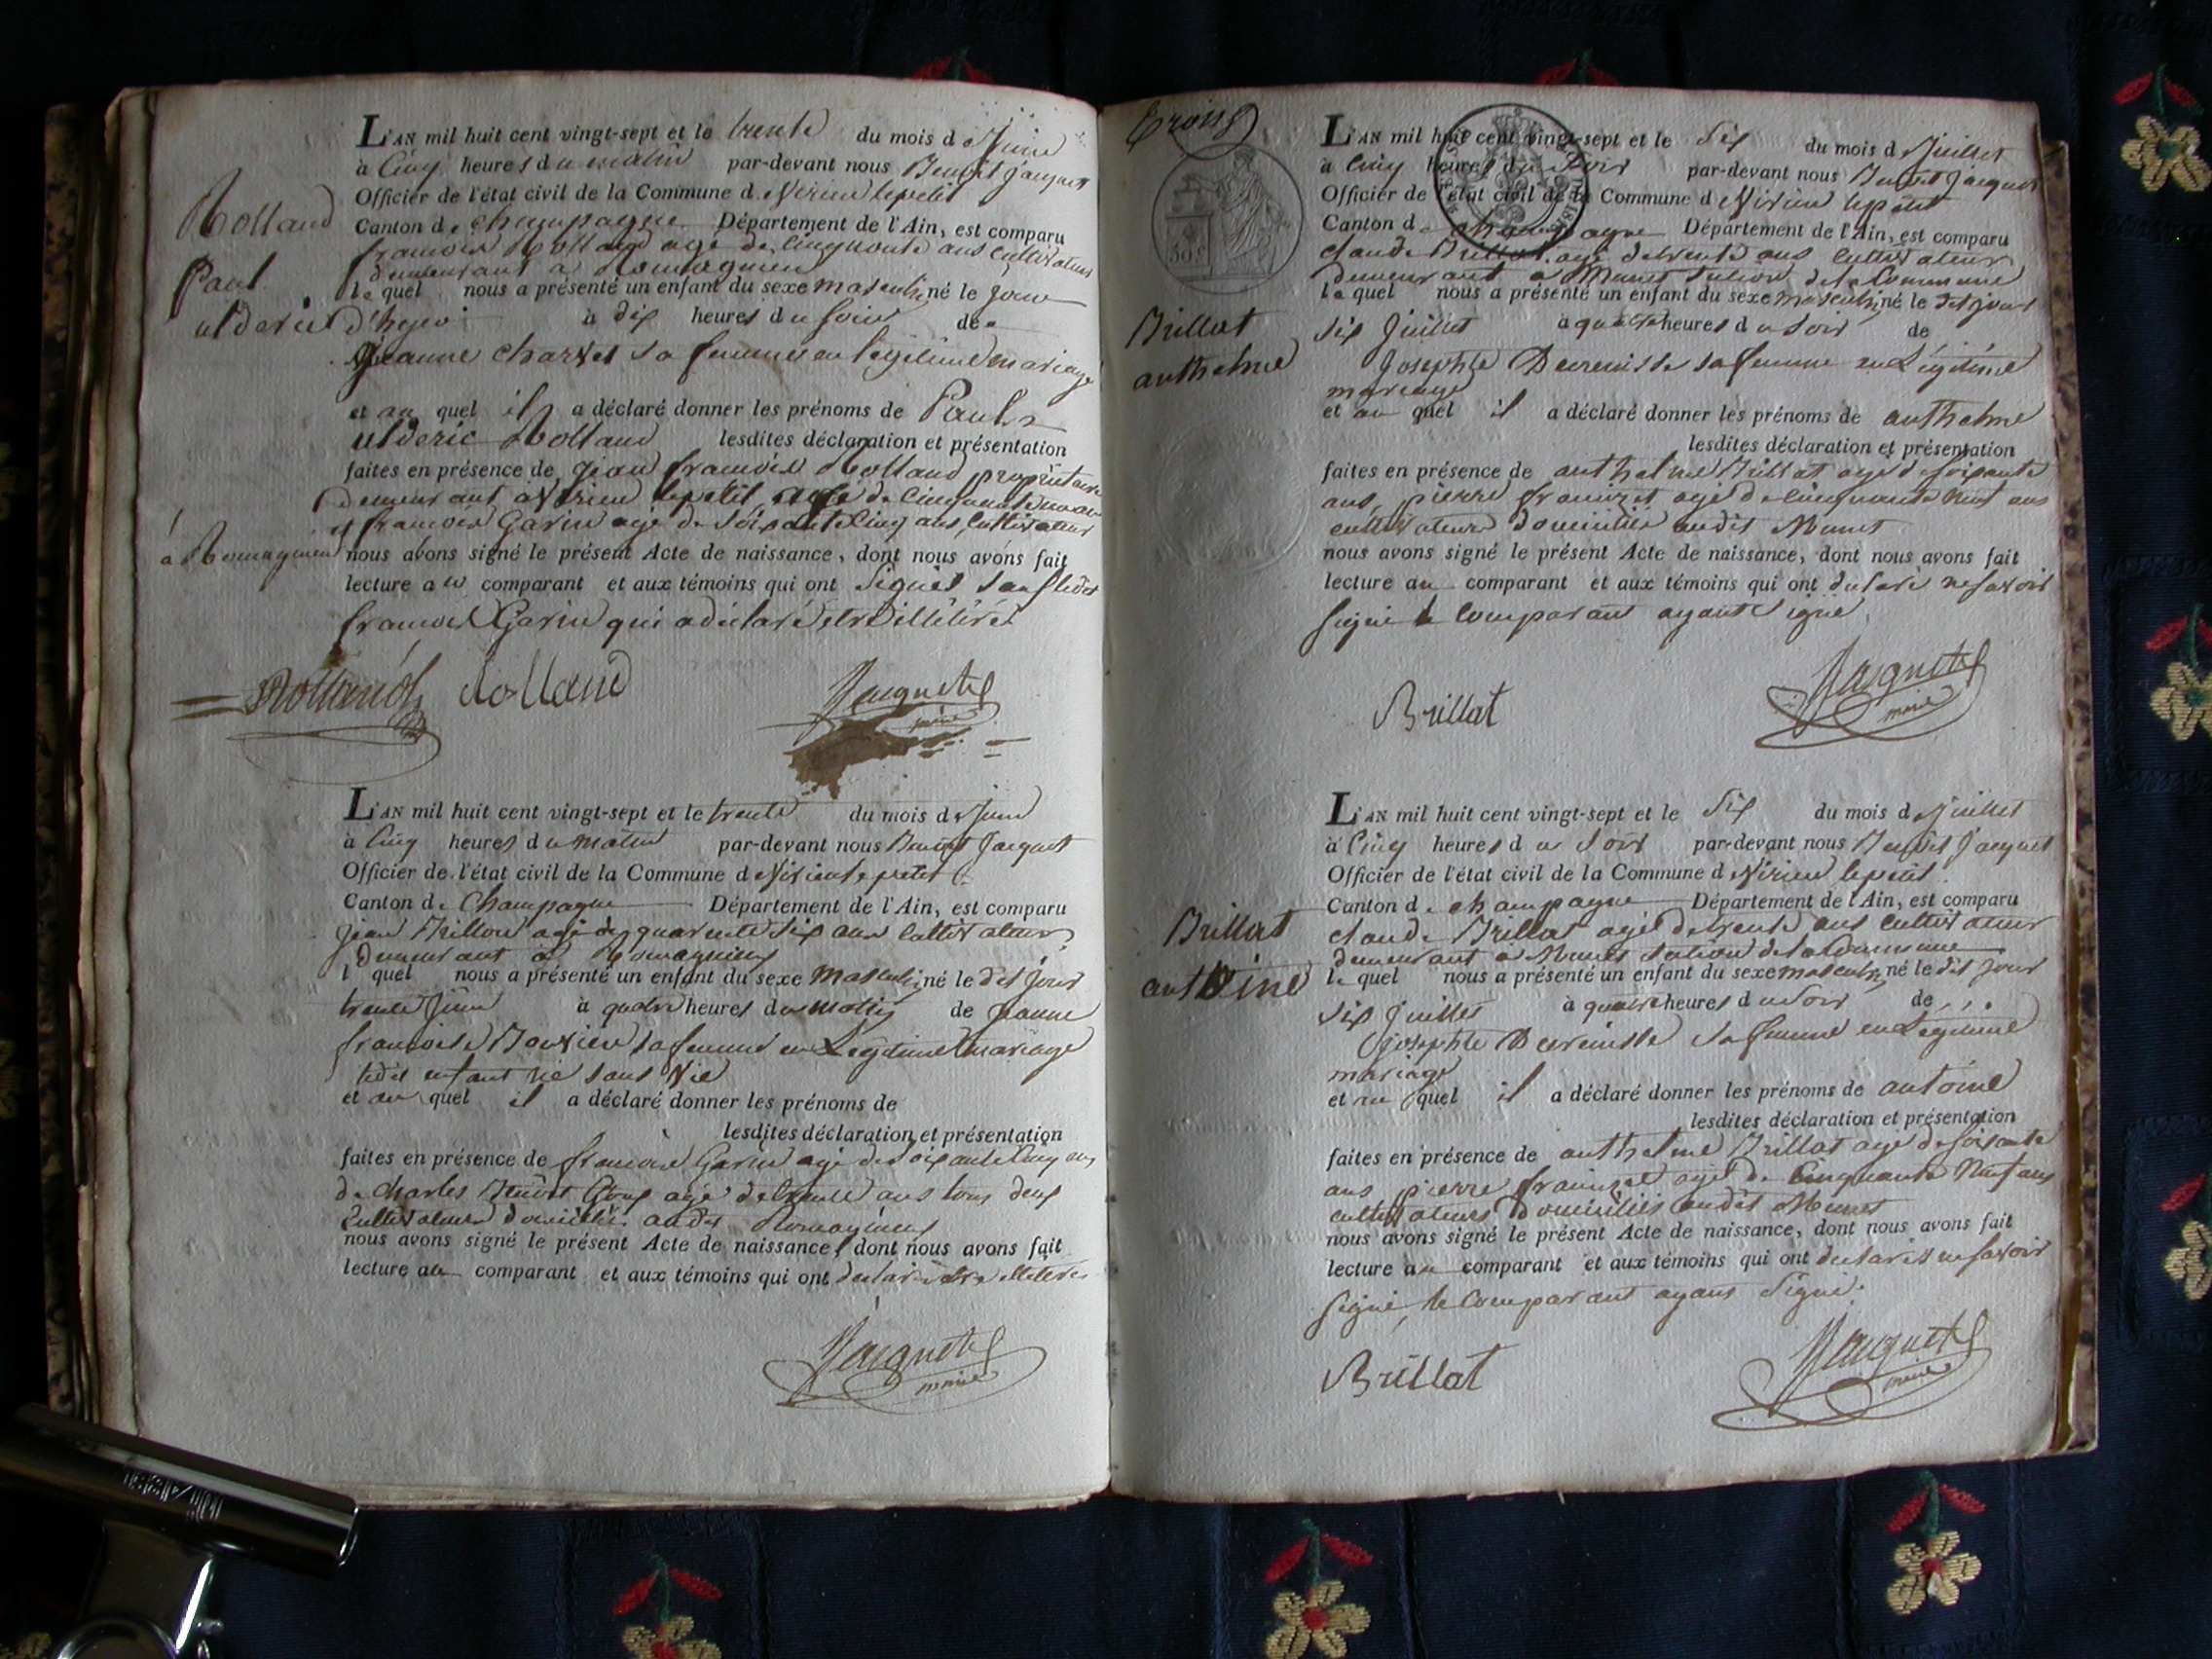 L'AN mil huit cent vingt-sept et le trente du mois de Juin
à Cinq heures du matin par-devant nous Benoit Jacquet
Officier de l'état civil de la Commune de Virieu lepetit
Rolland
Canton de champagne Département de l'Ain, est comparu
francois Rolland agé de Cinquante ans Cultivateur
Paul
demeurant a Romagnieu
le quel nous a présenté un enfant du sexe masculin né le jour
ulderic
d'hyer à dix heures du soir de
Jeanne charvet sa femme en legitime mariage
et au quel il a déclaré donner les prénoms de Paul
ulderic Rolland lesdites déclaration et présentation
faites en présence de jean francois Rolland proprietaire
demeurant a Virieu lepetit agé de Cinquante
et francois Garin agé de soixante Cinq ans, Cultivateur
a Romagnieu
nous avons signé le présent Acte de naissance, dont nous avons fait
lecture au comparant et aux témoins qui ont signés sauf ledit
francois Garin qui a déclaré etre illétéré
Rolland Rolland Jacquet
maire
L'AN mil huit cent vingt-sept et le trente du mois de Juin
à Cinq heures du matin par-devant nous Benoit Jacquet
Officier de l'état civil de la Commune de Virieu lepetit
Canton de Champagne Département de l'Ain, est comparu
jean agé de quarente six ans Cultivateur
demeurant a Romagnieu
l quel nous a présenté un enfant du sexe masculin né le dit jour
trente Juin à quatre heures du matin de jeanne
francoise sa femme en Legitime mariage
ledit enfant né sans Vie
et au quel il a déclaré donner les prénoms de
lesdites déclaration et présentation
faites en présence de francois Garin agé de soixante Cinq ans
de charles Benoit agé de trente ans tous deux
Cultivateurs domiciliés audit Romagnieu
nous avons signé le présent Acte de naissance, dont nous avons fait
lecture au comparant et aux témoins qui ont declaré etre illeterés
Jacquet
maire
Trois
L'AN mil huit cent vingt-sept et le Six du mois de Juillet
à Cinq heures du soir par-devant nous Benoit Jacquet
Officier de l'état civil de la Commune de Virieu lepetit
50 c
Canton de champagne Département de l'Ain, est comparu
claude Brillat agé de trente ans Cultivateur
demeurant a Munet section de la Commune
le quel nous a présenté un enfant du sexe masculin né le dit jour
Brillat
six Juillet à quatre heures du soir de
anthelme
Josephte sa femme en Legitime
mariage
et au quel il a déclaré donner les prénoms de anthelme
lesdites déclaration et présentation
faites en présence de anthelme Brillat agé de soixante
ans, pierre agé de Cinquante Neuf ans
cultivateurs domiciliés audit Munet
nous avons signé le présent Acte de naissance, dont nous avons fait
lecture au comparant et aux témoins qui ont declaré ne savoir
signé le Comparant ayant signé
Brillat Jacquet
maire
L'AN mil huit cent vingt-sept et le Six du mois de Juillet
à Cinq heures du soir par-devant nous Benoit Jacquet
Officier de l'état civil de la Commune de Virieu lepetit
Canton de champagne Département de l'Ain, est comparu
Brillat
claude Brillat agé de trente ans Cultivateur
demeurant a Munet section de la Commune
antoine
le quel nous a présenté un enfant du sexe masculin né le dit jour
six Juillet à quatre heures du soir de
Josephte sa femme en Legitime
mariage
et au quel il a déclaré donner les prénoms de antoine
lesdites déclaration et présentation
faites en présence de anthelme Brillat agé de soixante
ans, pierre agé de Cinquante Neuf ans
cultivateurs domiciliés audit Munet
nous avons signé le présent Acte de naissance, dont nous avons fait
lecture au comparant et aux témoins qui ont declarés ne savoir
signé, le Comparant ayant signé.
Brillat Jacquet
maire